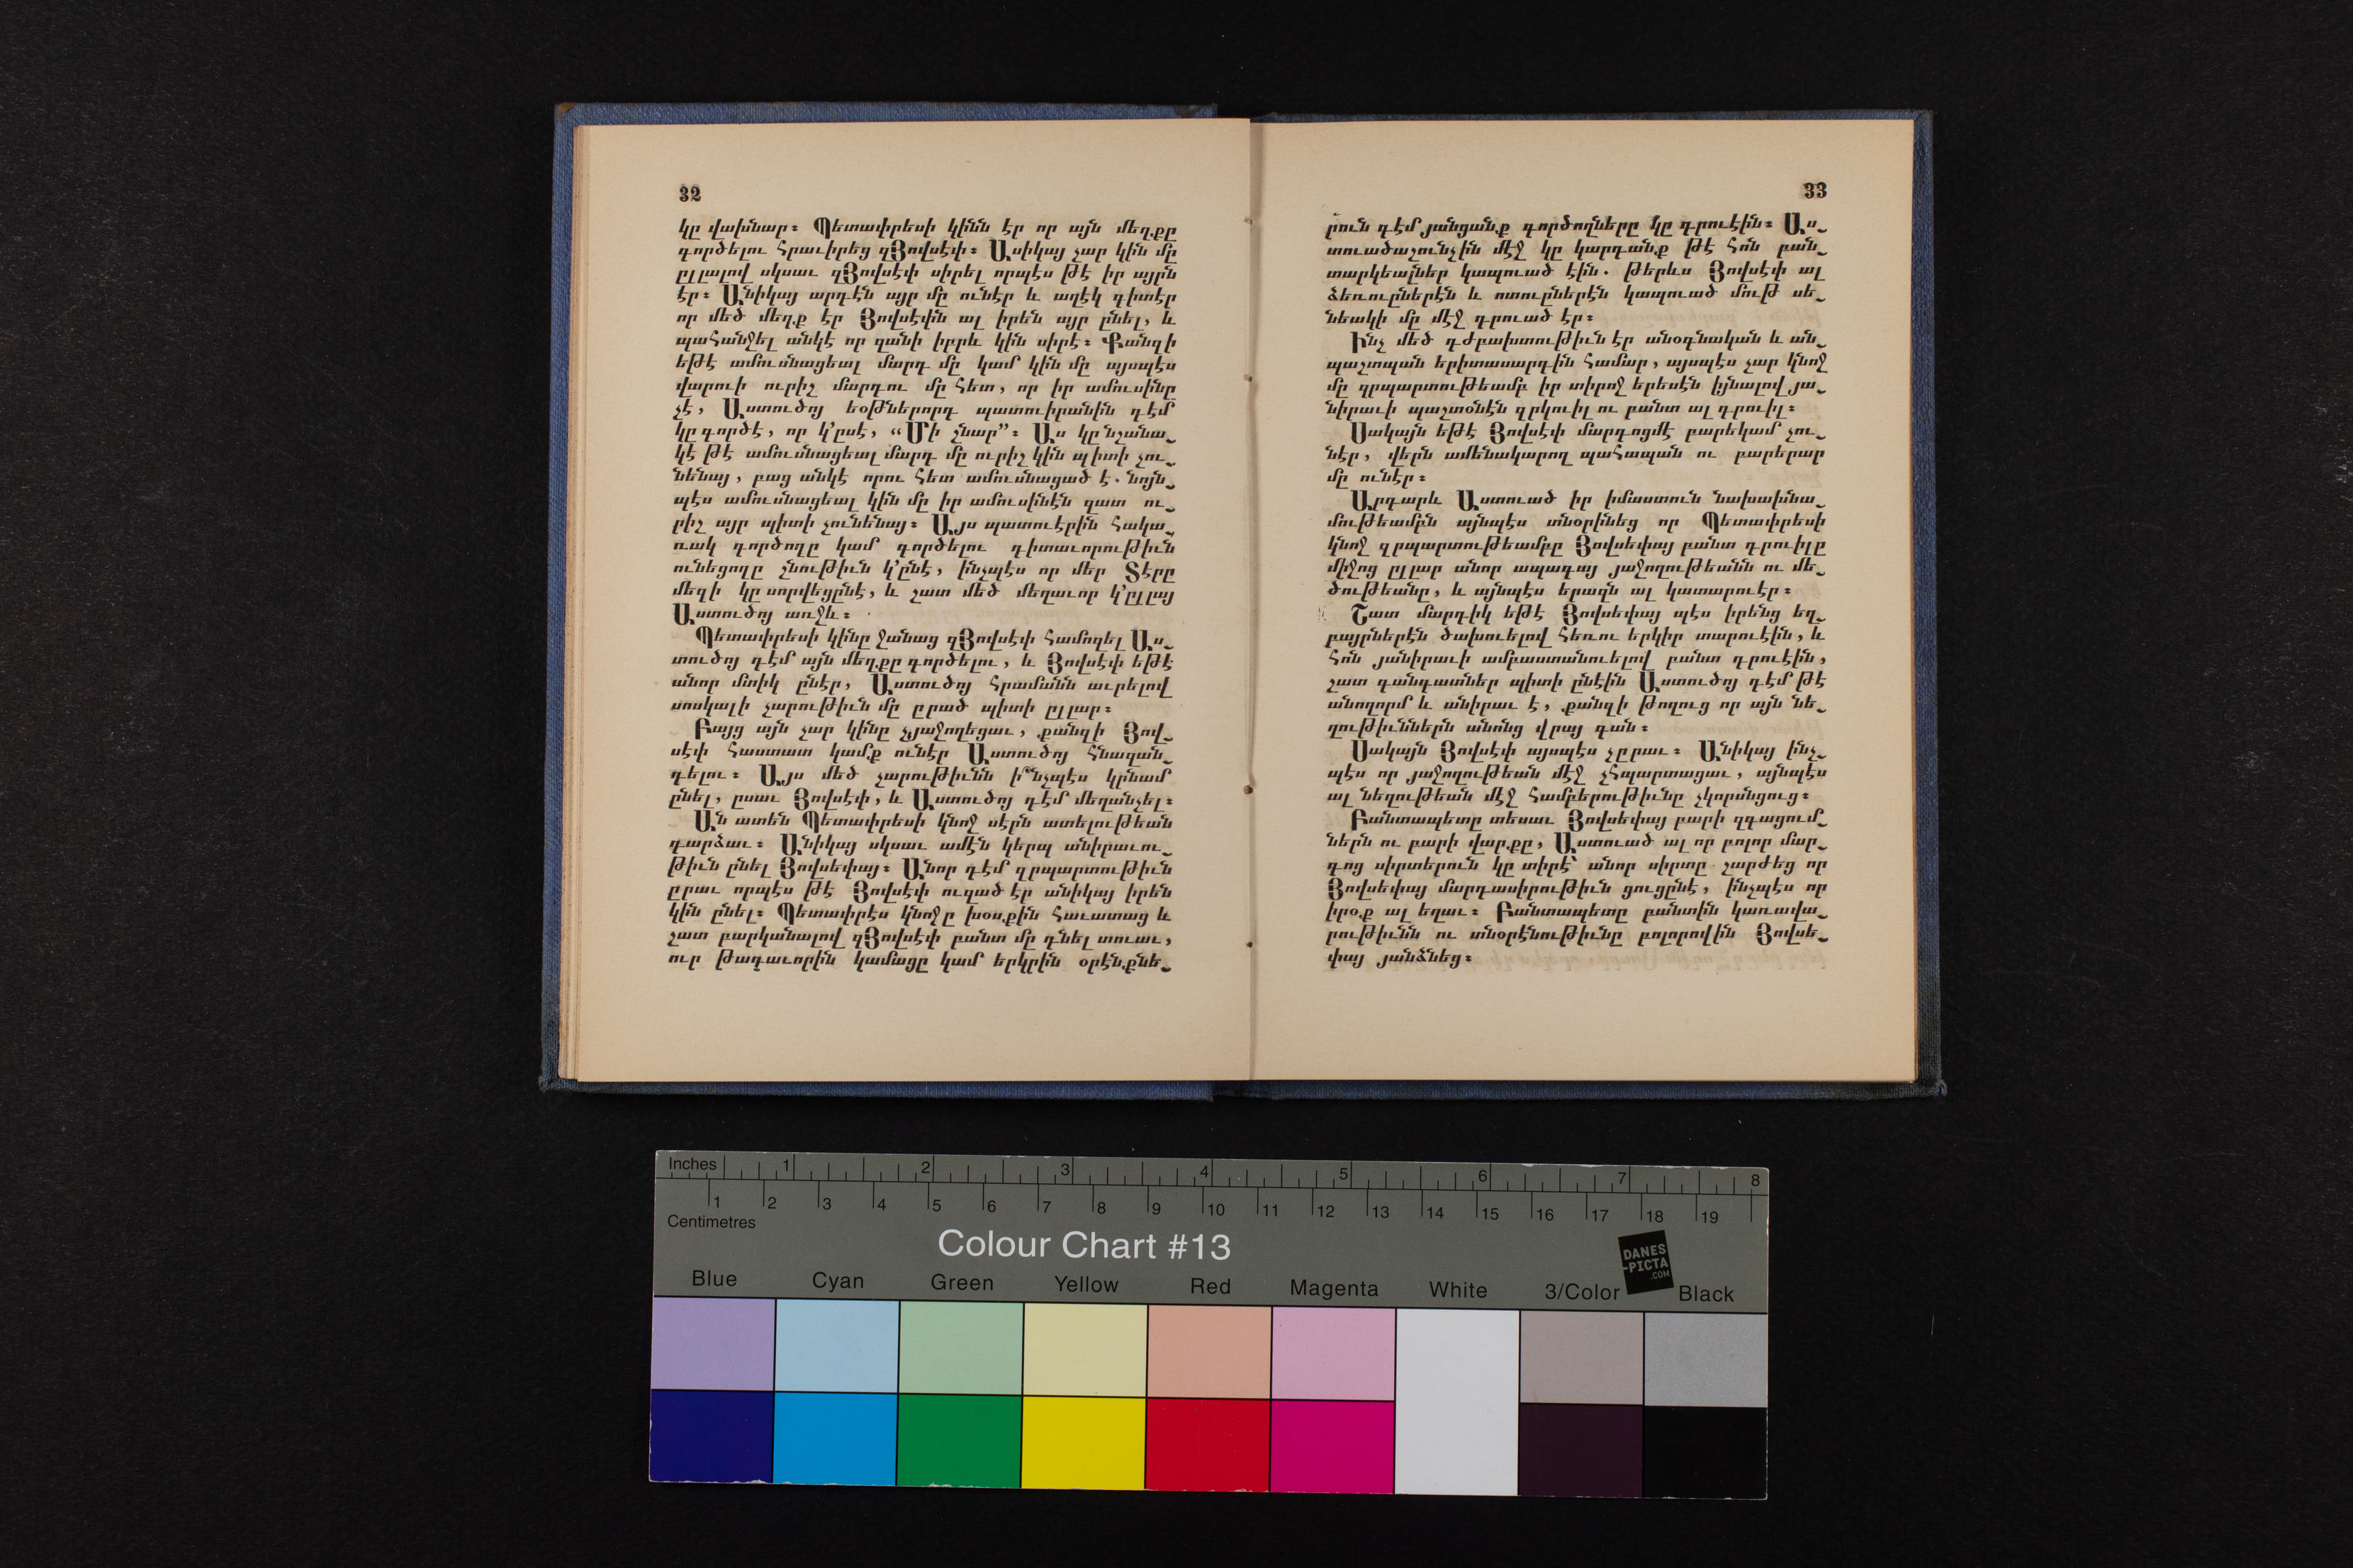 32
կը վախնար։ Պետափրեսի կինն էր որ այն մեղքը
գործելու հրաւիրեց զՅովսէփ։ Ասիկայ չար կին մը
ըլլալով սկսաւ զՅովսէփ սիրել որպէս թէ իր այրն
էր։ Անիկայ արդէն այր մը ունէր և աղէկ գիտէր
որ մեծ մեղք էր Յովսէփն ալ իրեն այր ընել, և
պահանջել անկէ որ զանի իբրև կին սիրէ։ Քանզի
եթէ ամուսնացեալ մարդ մը կամ կին մը այսպէս
վարուի ուրիչ մարդու մը հետ, որ իր ամուսինը
չէ, Աստուծոյ եօթներորդ պատուիրանին դէմ
կը գործէ, որ կ’ըսէ, “Մի շնար”։ Աս կը նշանա֊
կէ թէ ամուսնացեալ մարդ մը ուրիշ կին պիտի չու֊
նենայ, բաց անկէ որու հետ ամուսնացած է. նոյն֊
պէս ամուսնացեալ կին մը իր ամուսինէն զատ ու֊
րիշ այր պիտի չունենայ։ Այս պատուէրին հակա֊
ռակ գործողը կամ գործելու դիտաւորութիւն
ունեցողը շնութիւն կ’ընէ, ինչպէս որ մեր Տէրը
մեզի կը սորվեցընէ, և շատ մեծ մեղաւոր կ’ըլլայ
Աստուծոյ առջև։
Պետափրեսի կինը ջանաց զՅովսէփ համոզել Աս֊
տուծոյ դէմ այն մեղքը գործելու, և Յովսէփ եթէ
անոր մտիկ ընէր, Աստուծոյ հրամանն աւրելով
սոսկալի չարութիւն մը ըրած պիտի ըլլար։
Բայց այն չար կինը չյաջողեցաւ, քանզի Յով֊
սէփ հաստատ կամք ունէր Աստուծոյ հնազան֊
դելու։ Այս մեծ չարութիւնն ի՞նչպէս կրնամ
ընել, ըսաւ Յովսէփ, և Աստուծոյ դէմ մեղանչել։
Ան ատեն Պետափրեսի կնոջ սէրն ատելութեան
դարձաւ։ Անիկայ սկսաւ ամէն կերպ անիրաւու֊
թիւն ընել Յովսեփայ։ Անոր դէմ զրպարտութիւն
ըրաւ որպէս թէ Յովսէփ ուզած էր անիկայ իրեն
կին ընել։ Պետափրէս կնոջը խօսքին հաւատաց և
շատ բարկանալով զՅովսէփ բանտ մը դնել տուաւ,
ուր թագաւորին կամացը կամ երկրին օրէնքնե֊
33
րուն դէմ յանցանք գործողները կը դրուէին։ Աս֊
տուածաշունչին մէջ կը կարդանք թէ հոն բան֊
տարկեալներ կապուած էին. թերևս Յովսէփ ալ
ձեռուըներէն և ոտուըներէն կապուած մութ սե֊
նեակի մը մէջ դրուած էր։
Ինչ մեծ դժբախտութիւն էր անօգնական և ան֊
պաշտպան երիտասարդին համար, այսպէս չար կնոջ
մը զրպարտութեամբ իր տիրոջ երեսէն իյնալով յա֊
նիրաւի պաշտօնէն զրկուիլ ու բանտ ալ դրուիլ։
Սակայն եթէ Յովսէփ մարդոցմէ բարեկամ չու֊
նէր, վերն ամենակարող պահապան ու բարերար
մը ունէր։
Արդարև Աստուած իր իմաստուն նախախնա֊
մութեամբն այնպէս տնօրինեց որ Պետափրեսի
կնոջ զրպարտութեամբը Յովսեփայ բանտ դրուիլը
միջոց ըլլար անոր ապագայ յաջողութեանն ու մե֊
ծութեանը, և այնպէս երազն ալ կատարուէր։
Շատ մարդիկ եթէ Յովսեփայ պէս իրենց եղ֊
բայրներէն ծախուելով հեռու երկիր տարուէին, և
հոն յանիրաւի ամբաստանուելով բանտ դրուէին,
շատ գանգատներ պիտի ընէին Աստուծոյ դէմ թէ
անողորմ և անիրաւ է, քանզի թողուց որ այն նե֊
ղութիւններն անոնց վրայ գան։
Սակայն Յովսէփ այսպէս չըրաւ։ Անիկայ ինչ֊
պէս որ յաջողութեան մէջ չհպարտացաւ, այնպէս
ալ նեղութեան մէջ համբերութիւնը չկորսնցուց։
Բանտապետը տեսաւ Յովսեփայ բարի զգացում֊
ներն ու բարի վարքը, Աստուած ալ որ բոլոր մար֊
դոց սիրտերուն կը տիրէ՝ անոր սիրտը շարժեց որ
Յովսեփայ մարդասիրութիւն ցուցընէ, ինչպէս որ
իրօք ալ եղաւ։ Բանտապետը բանտին կառավա֊
րութիւնն ու տնօրէնութիւնը բոլորովին Յովսե֊
փայ յանձնեց։
Inches 1 2 3 4 5 6 7 8
1 2 3 4 5 6 7 8 9 10 11 12 13 14 15 16 17 18 19
Centimetres
Colour Chart #13
DANES
-PICTA
.COM
Blue Cyan Green Yellow Red Magenta White 3/Color Black